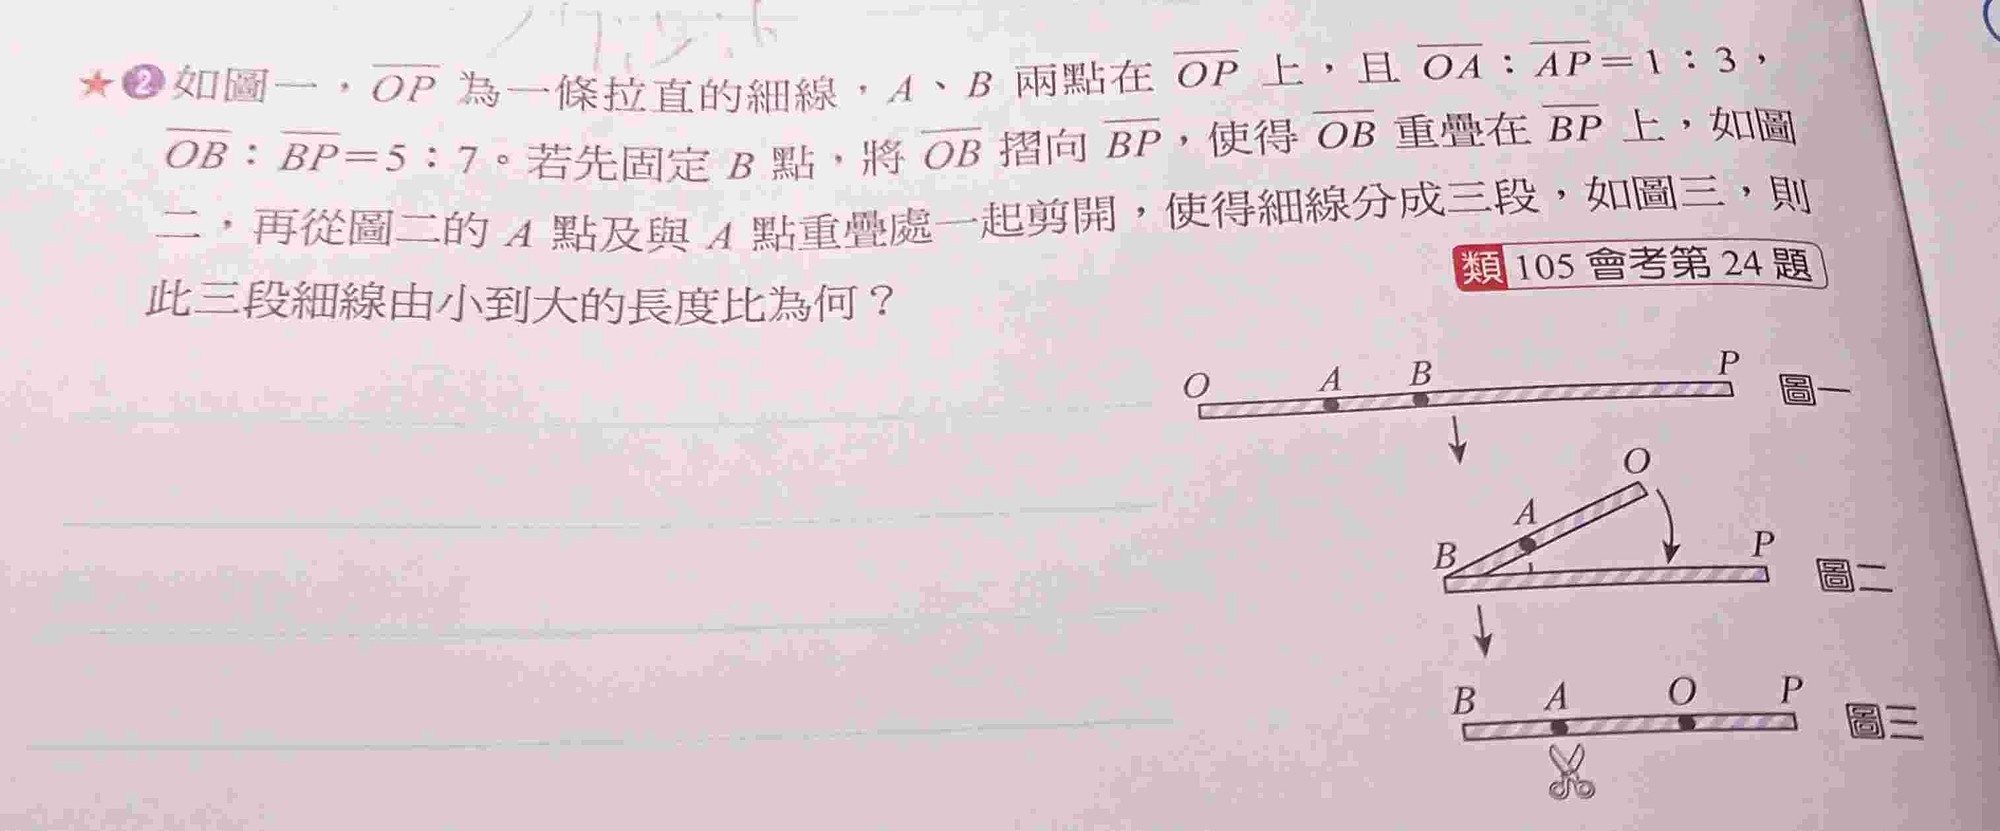 ★❷如圖一，OP 為一條拉直的細線，A、B 兩點在 OP 上，且 OA：AP＝1：3，
OB：BP＝5：7。若先固定 B 點，將 OB 摺向 BP，使得 OB 重疊在 BP 上，如圖
二，再從圖二的 A 點及與 A 點重疊處一起剪開，使得細線分成三段，如圖三，則
此三段細線由小到大的長度比為何？
類 105 會考第 24 題
O A B P 圖一
O
A
B P 圖二
B A O P 圖三